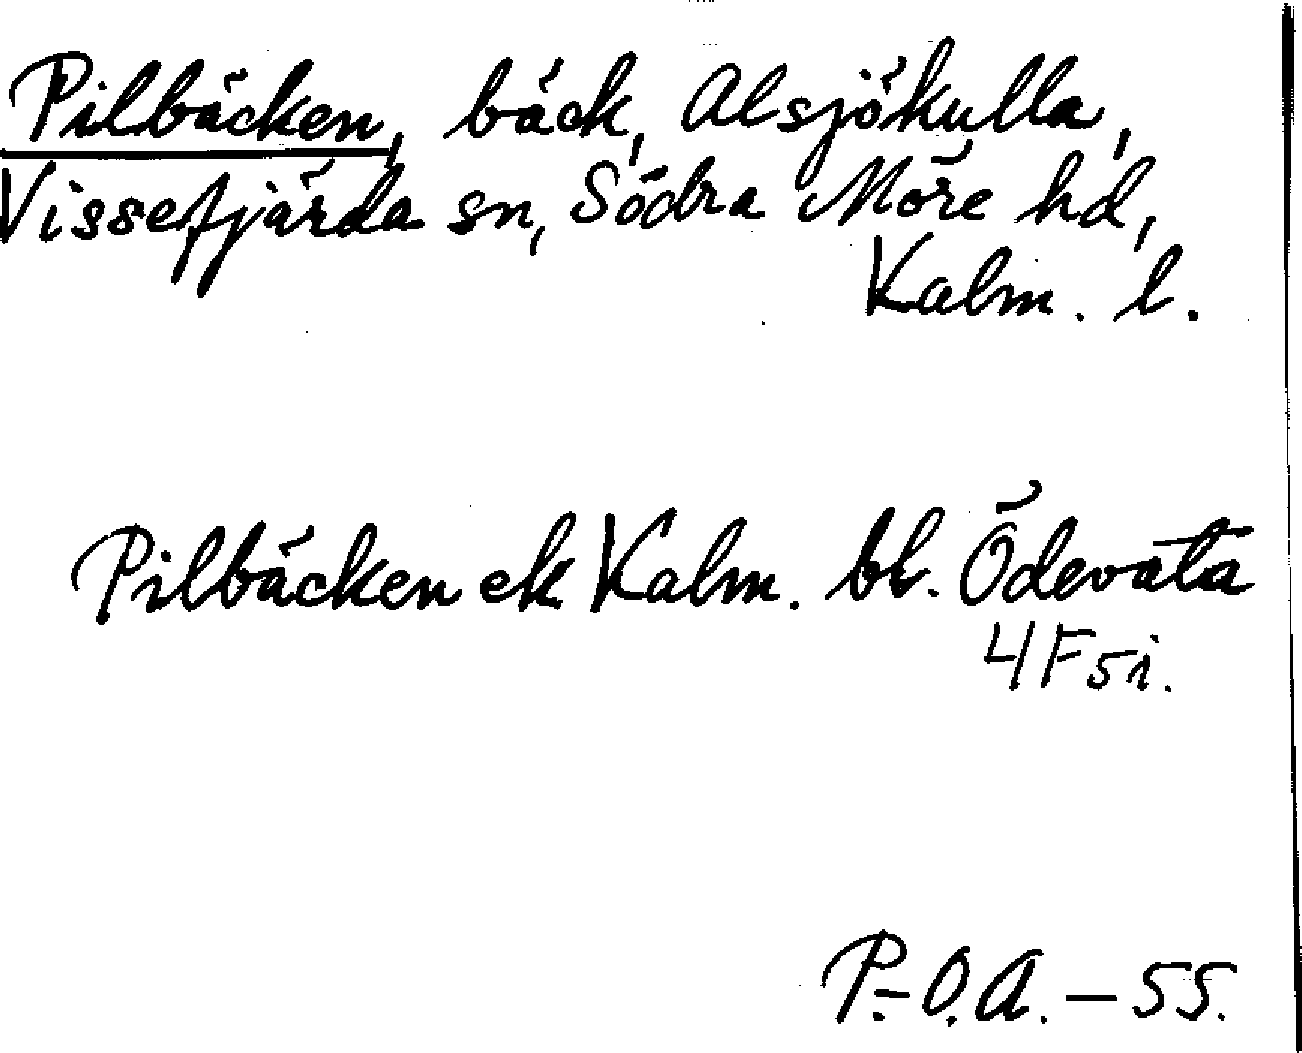 Pilbäcken, bäck, Alsjökulla,
Vissefjärda sn, Södra Möre hd,
Kalm. l.
Pilbäcken ek Kalm. bl. Ödevata
4F5i.
P.-O.A.-55.